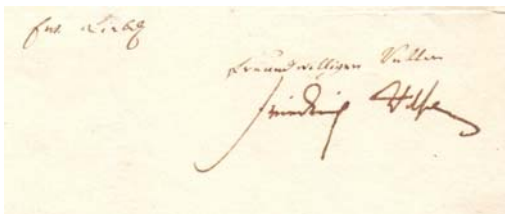 Ew. Liebd
freundwilliger Vetter
Friedrich Wilh